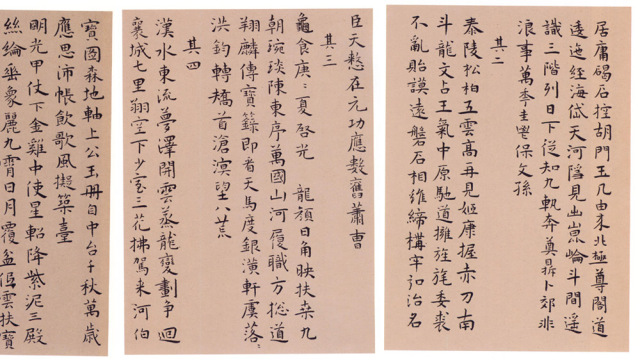 居庸碣石控胡門玉几由来北極尊閣道
逶迤經海岱天河隱見出崑崙斗間遥
識三階列日下從知九軌奔奠鼎卜郊非
浪事萬季王業保文孫
其二
泰陵松柏五雲高再見姬康握赤刀南
斗龍文占王氣中原馳道擁旌旄委裘
不亂貽謨遠磐石相維締構牢弘治名
臣天憖在元功應數舊蕭曹
其三
龜食庚〻夏啓光 龍顏日角映扶桒九
朝琬琰陳東序萬國山河履職方總道
翔麟傳寶籙即看天馬度銀潢軒虞落〻
洪鈞轉矯首滄溟望八荒
其四
漢水東流夢澤開雲蒸龍變劃爭迴
襄城七里翔空下少室三花拂駕来河伯
寶圖森地軸上公玉冊自中台千秋萬歲
應思沛帳飲歌風擬築臺
明光甲仗下金雞中使星軺降紫泥三殿
絲綸垂象麗九霄日月覆盆低雲扶寶